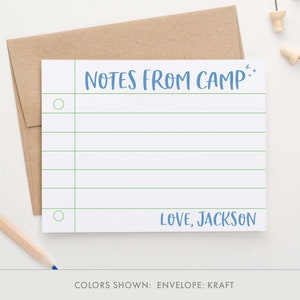 NOTES FROM CAMP
LOVE, JACKSON
COLORS SHOWN: ENVELOPE: KRAFT